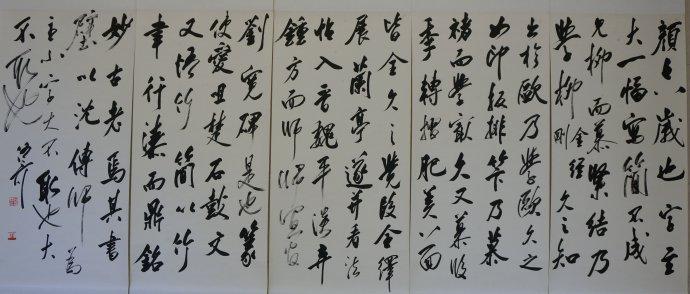 顏七八歲也字至
大一幅寫簡不成
見柳而慕緊結乃
學柳金剛經久之知
出於歐乃學歐久之
如印板排筭乃慕
褚而學最久又慕段
季轉摺肥美八面
皆全久之覺段全繹
展蘭亭遂并看法
帖入晉魏平淡棄
鍾方而師師宜官
劉寬碑是也篆
便愛詛楚石鼓文
又悟竹簡以竹
聿行漆而鼎銘
妙古老焉其書
壁以沈傳師為
主小字大不取也大
不取也